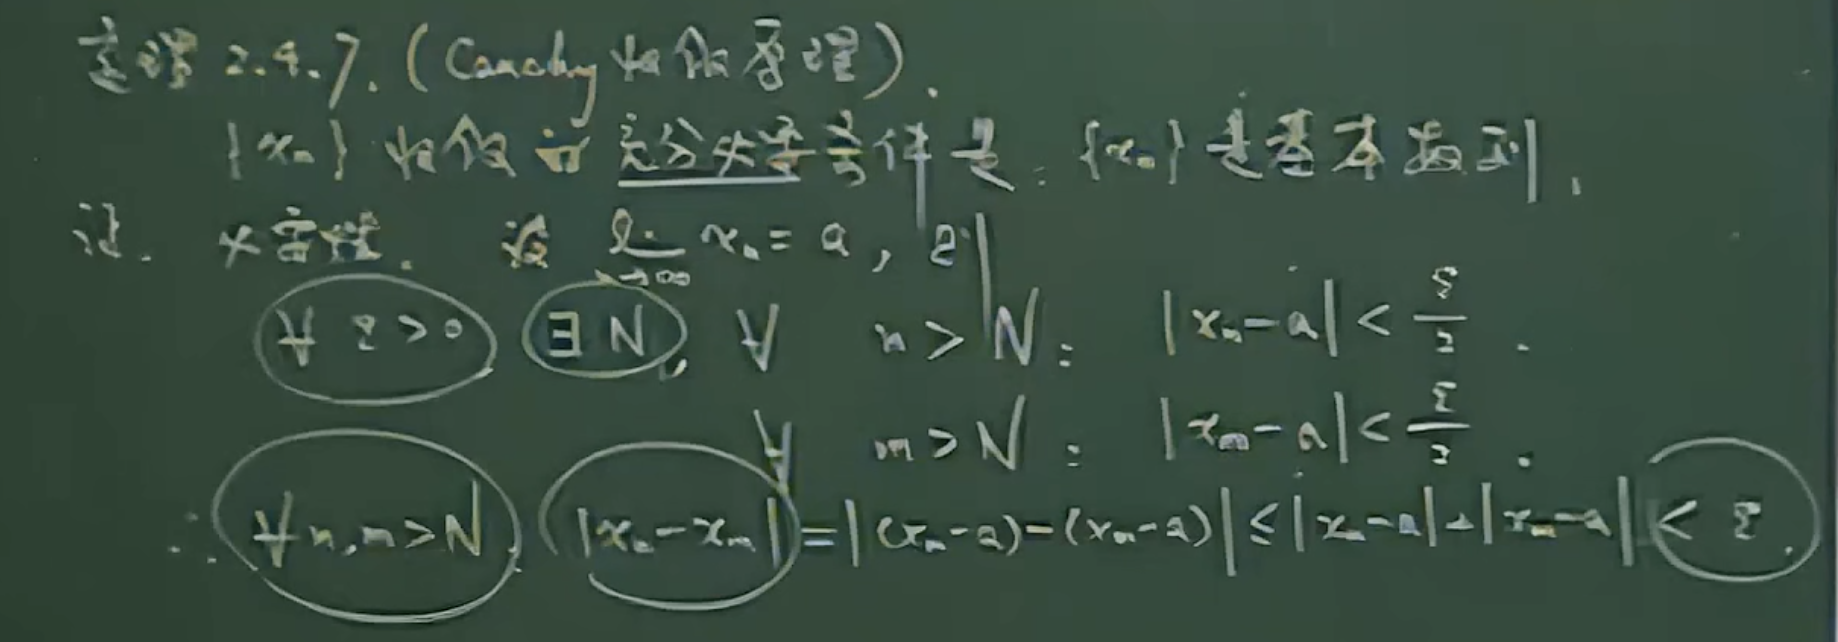 定理 2.4.7. (Cauchy 收敛原理).
{xₙ} 收敛的充分必要条件是: {xₙ} 是基本数列.
证. 必要性. 设 lim_{n→∞} xₙ = a, 则
∀ ε > 0 ∃ N, ∀ n > N: |xₙ - a| < ε/2.
∀ m > N: |xₘ - a| < ε/2.
∴ ∀ n, m > N. |xₙ - xₘ| = |(xₙ - a) - (xₘ - a)| ≤ |xₙ - a| + |xₘ - a| < ε.